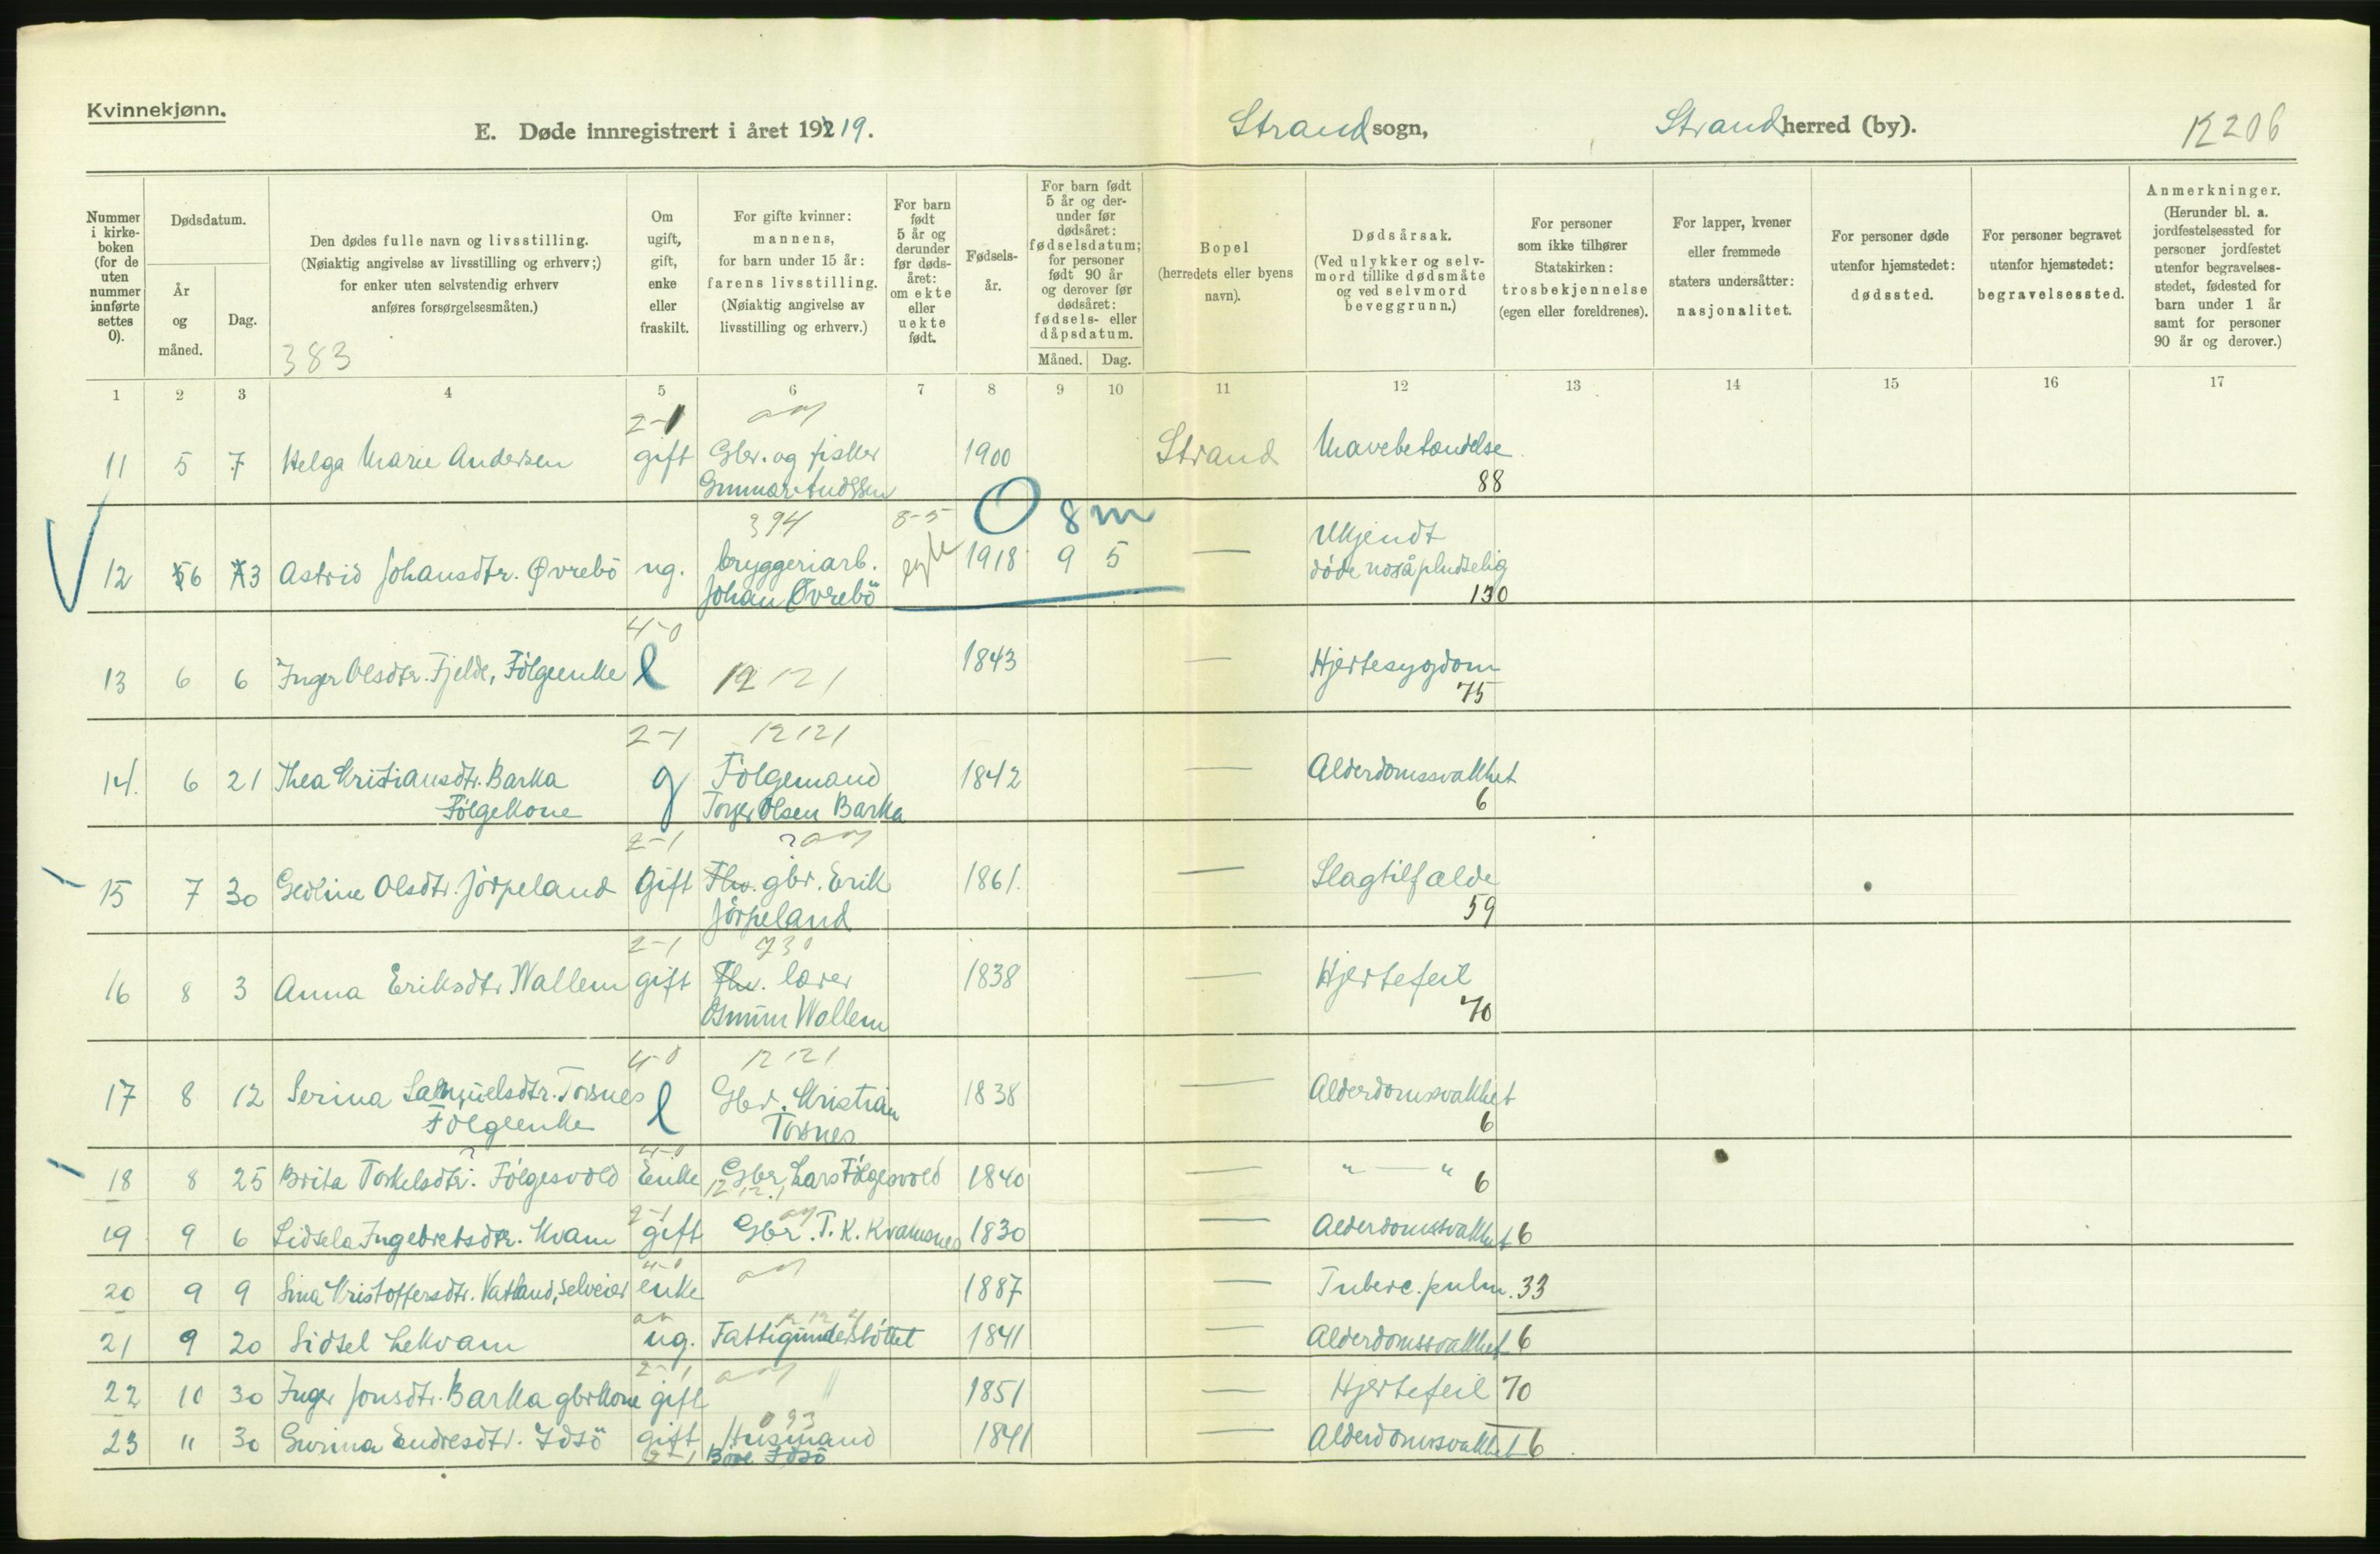 Kvinnekjønn.
E. Døde innregistrert i året 19219.
Strand sogn,
Strand herred (by).
12206
Nummer i kirke-boken (for de uten nummer innførte settes 0).
Dødsdatum.
År og måned.
Dag.
Den dødes fulle navn og livsstilling.
(Nøiaktig angivelse av livsstilling og erhverv;)
for enker uten selvstendig erhverv
anføres forsørgelsesmåten.)
383
Om ugift, gift, enke eller fraskilt.
For gifte kvinner: mannens, for barn under 15 år: farens livsstilling. (Nøiaktig angivelse av livsstilling og erhverv.)
For barn født 5 år og derunder før døds-året: om ekte eller uekte født.
Fødsels-år.
For barn født 5 år og der-under før dødsåret: fødselsdatum; for personer født 90 år og derover før dødsåret: fødsels- eller dåpsdatum.
Måned. Dag.
Bopel (herredets eller byens navn).
Dødsårsak. (Ved ulykker og selv-mord tillike dødsmåte og ved selvmord beveggrunn.)
For personer som ikke tilhører Statskirken: trosbekjennelse (egen eller foreldrenes).
For lapper, kvener eller fremmede staters undersåtter: nasjonalitet.
For personer døde utenfor hjemstedet: dødssted.
For personer begravet utenfor hjemstedet: begravelsessted.
Anmerkninger. (Herunder bl. a. jordfestelsessted for personer jordfestet utenfor begravelses-stedet, fødested for barn under 1 år samt for personer 90 år og derover.)
1 2 3 4 5 6 7 8 9 10 11 12 13 14 15 16 17
2-1
11 5 7 Helga Marie Andersen gift Gbr. og fisker 1900 Strand Mavebetændelse
88
394 8-5 O 8m
12 6 3 Astrid Johansdtr. Øvrebö ug. bryggeriarb. 1918 9 5 — Ukjendt
Johan Øvrebö døde også pludselig
130
4-0
13 6 6 Inger Olsdtr. Fjelde, Følgeenke l 12121 1843 — Hjertesygdom
75
2-1 12121
14. 6 21 Thea Kristiansdtr. Barka g Følgemand 1842 — Alderdomssvakhet
Følgekone Torger Olsen Barka 6
2-1
15 7 30 Gedline Olsdtr. Jørpeland Gift Fhv. gbr. Erik 1861. — Slagtilfælde
Jørpeland 59
2-1 730
16 8 3 Anna Eriksdtr. Wallem gift Fhv. lærer 1838 — Hjertefeil
Wallem 70
4-0 12121
17 8 12 Serina Samuelsdtr. Torsnes l Gbr. Kristian 1838 — Alderdomsvakhet
Følgeenke Torsnes 6
4-0
18 8 25 Brita Torkelsdtr. Følgesvold Enke Gbr. Lars Følgesvold 1840 — " — " 6
2-1
19 9 6 Sidsela Ingebretsdtr. Kvam gift Gbr. T. K. Kvamsnes 1830 — Alderdomssvakhet 6
4-0
20 9 9 Sina Kristoffersdtr. Vatland, selveier enke 1887 — Tuberc. pulm. 33
21 9 20 Sidsel Lekvam ug. Fattigunderstøttet 1841 — Alderdomssvakhet 6
2-1
22 10 30 Inger Jonsdtr. Barka gbrkone gift " 1851 — Hjertefeil 70
093
23 11 30 Gurina Endresdtr. Idsö gift Husmand 1841 — Alderdomsvakhet 6
2-1 Idsö